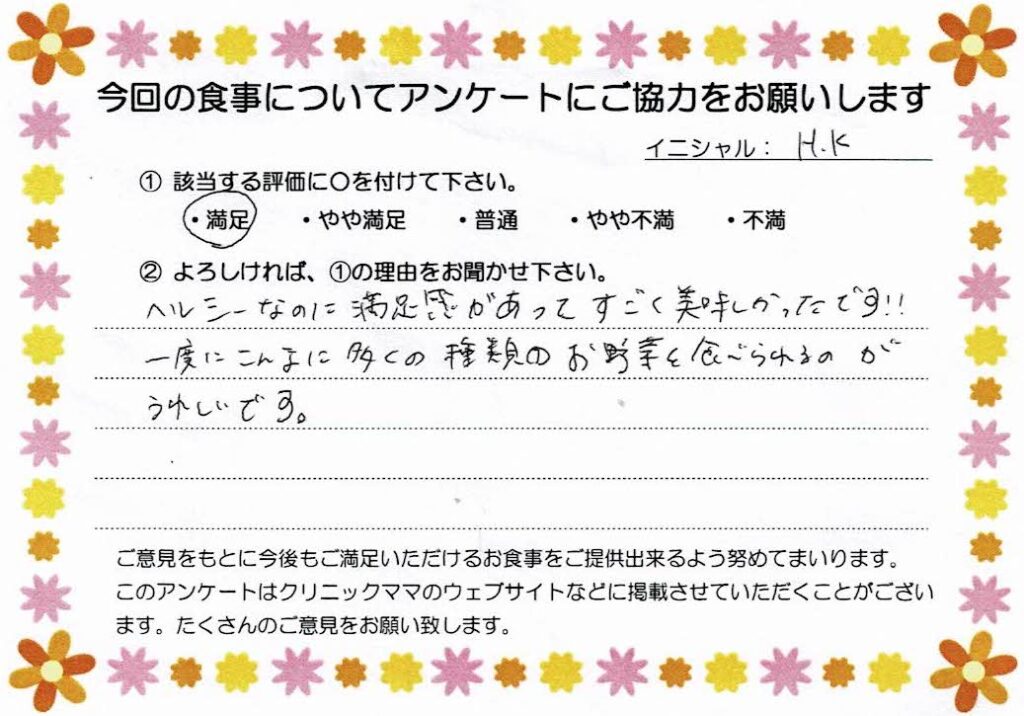 今回の食事についてアンケートにご協力をお願いします
イニシャル： H.K
① 該当する評価に〇を付けて下さい。
・満足 ・やや満足 ・普通 ・やや不満 ・不満
② よろしければ、①の理由をお聞かせ下さい。
ヘルシーなのに満足感があってすごく美味しかったです!!
一度にこんなに多くの種類のお野菜を食べられるのが
うれしいです。
ご意見をもとに今後もご満足いただけるお食事をご提供出来るよう努めてまいります。
このアンケートはクリニックママのウェブサイトなどに掲載させていただくことがござい
ます。たくさんのご意見をお願い致します。